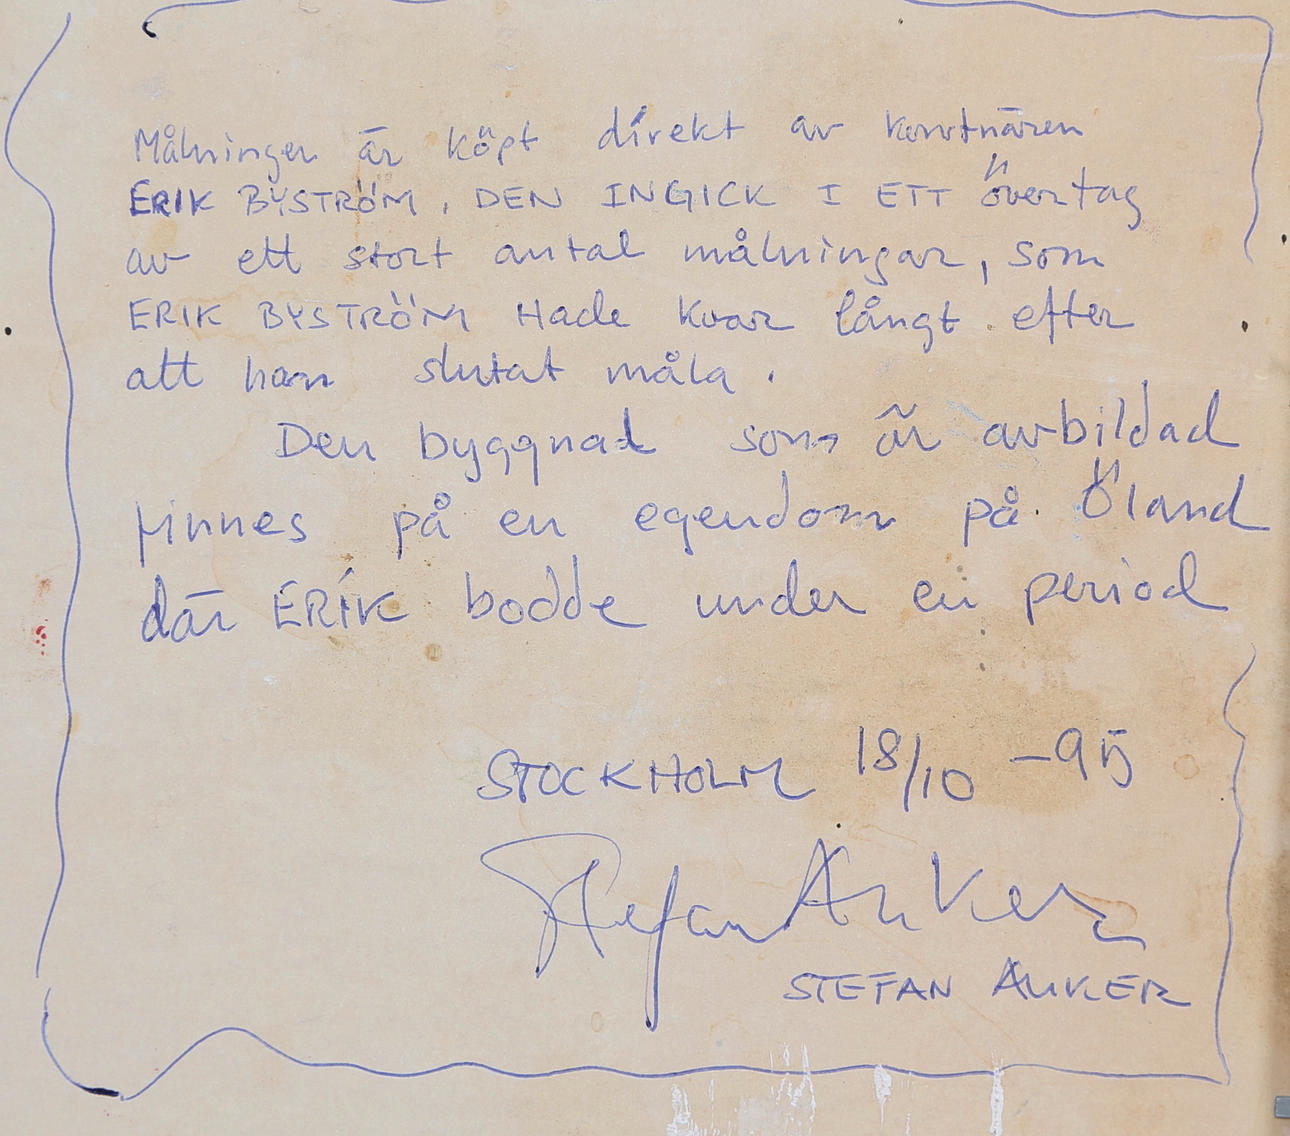 Målningen är köpt direkt av konstnären
ERIK BYSTRÖM. DEN INGICK I ETT övertag
av ett stort antal målningar, som
ERIK BYSTRÖM Hade kvar långt efter
att han slutat måla.
Den byggnad som är avbildad
finnes på en egendom på Öland
där ERIK bodde under en period
STOCKHOLM 18/10 -95
Stefan Anker
STEFAN ANKER